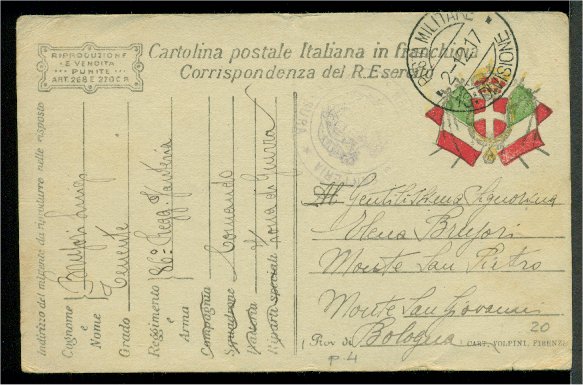 RIPRODUZIONE
E VENDITA
PUNITE
ART. 268 E 270 C.P.
Cartolina postale Italiana in franchigia
Corrispondenza del R. Esercito
POSTA MILITARE
2-12-17
DIVISIONE
Indirizzo del mittente da riprodurre nelle risposte
Cognome
e
Nome
Grado Tenente
Reggimento 86º Regg. Fanteria
e
Arma
Compagnia Comando
Squadrone
Batteria
Riparto speciale Zona di Guerra
FANTERIA
Gentilissima Signorina
Elena Brufori
Monte San Pietro
Monte San Giovanni
Prov di Bologna
20
CART. VOLPINI, FIRENZE
p. 4